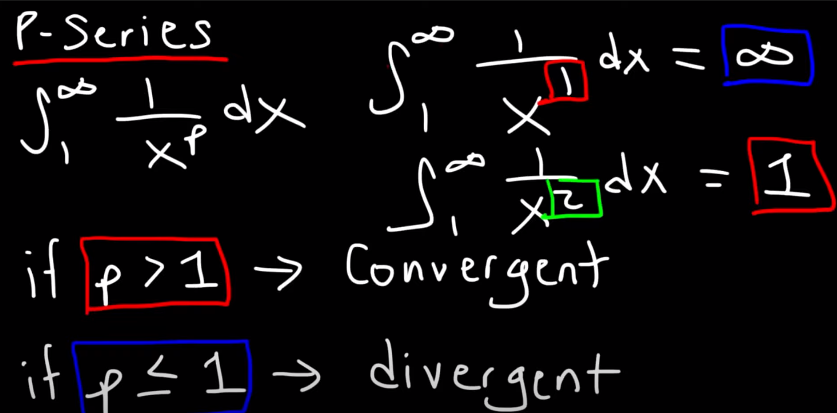 P-Series
∫₁^∞ 1/x^p dx
∫₁^∞ 1/x^1 dx = ∞
∫₁^∞ 1/x^2 dx = 1
if p > 1 → Convergent
if p ≤ 1 → divergent